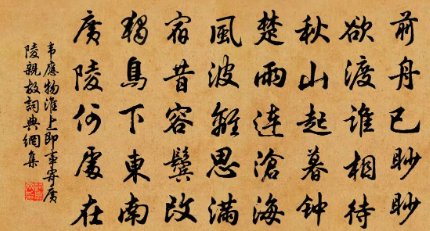 前舟已眇眇
欲渡誰相待
秋山起暮鐘
楚雨連滄海
風波離思滿
宿昔容鬢改
獨鳥下東南
廣陵何處在
韋應物淮上即事寄廣
陵親故詞典網集